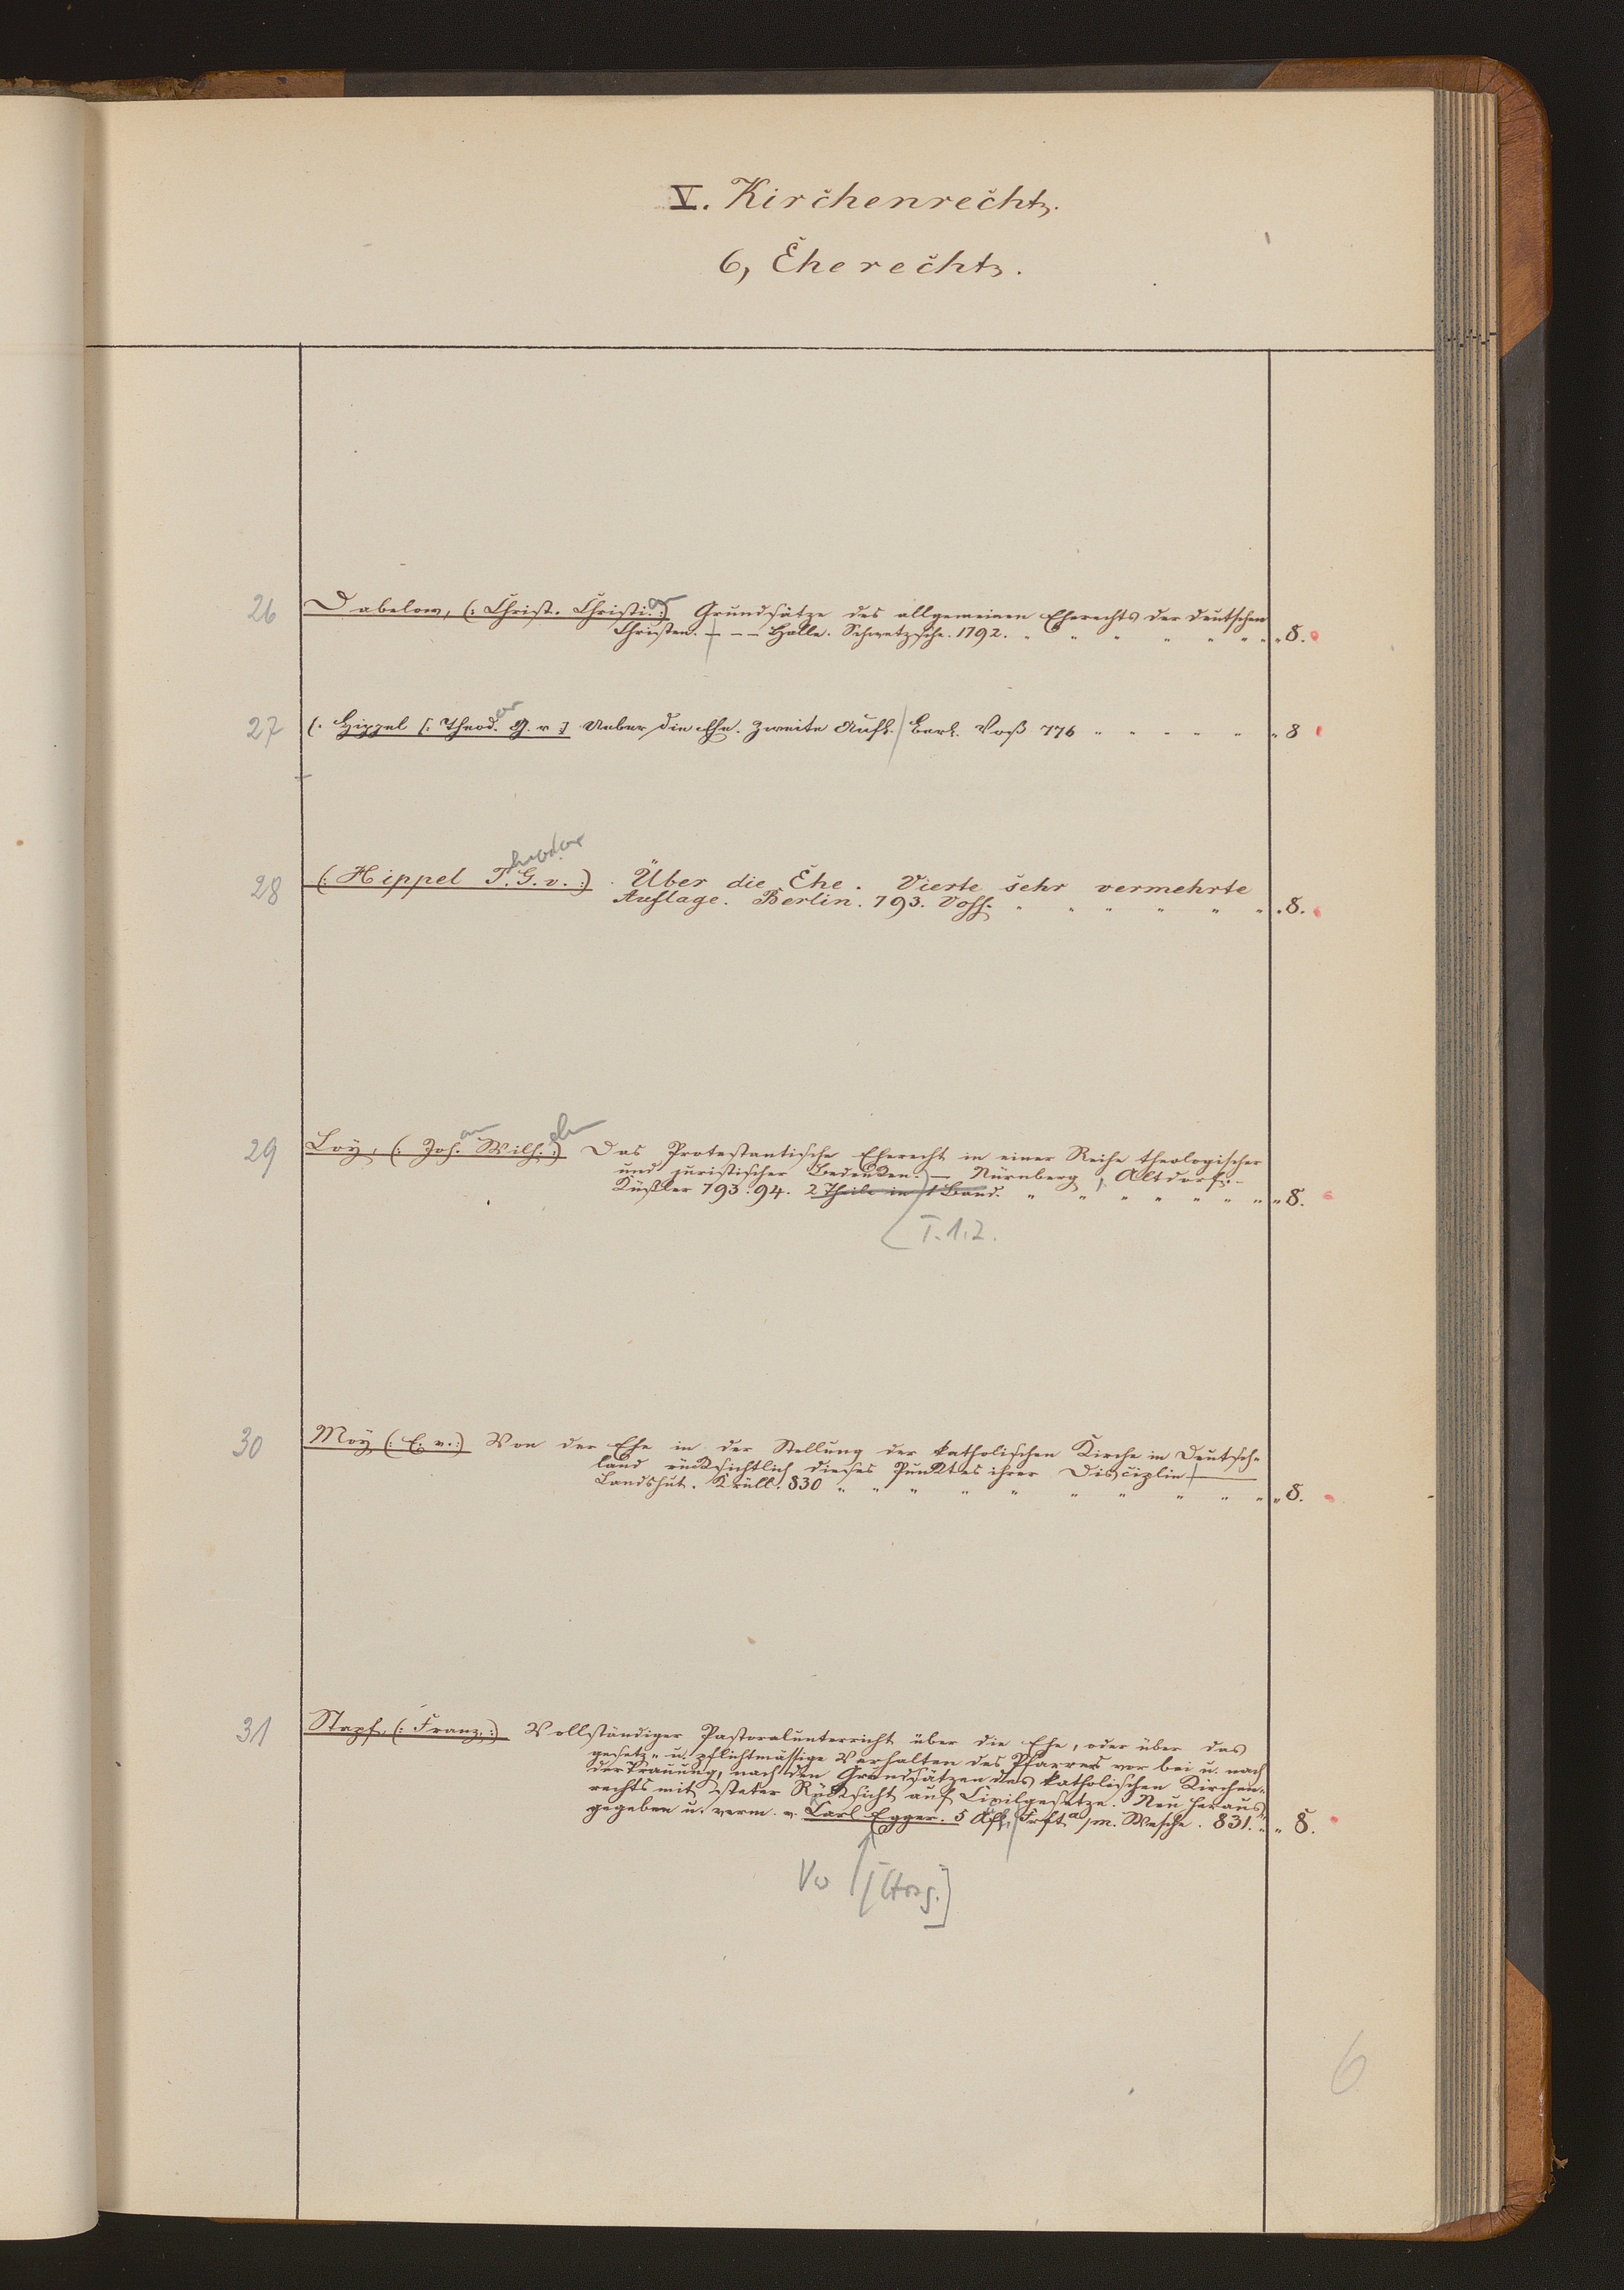 V. Kirchenrecht.
6, Eherecht.
26 Dabelow, (: Christ. Christi. :) an Grundsätze des allgemeinen Eherechts der deutschen
Christen. – – – Halle. Schwetzsche. 1792. " " " " " " " " 8.
27 (: Hippel [: Theod. or G. v :] Ueber die Ehe. Zweite Aufl. / Berl. Voß 776 " " " " " " 8
28 (: Hippel T. heodor G. v. :) Über die Ehe. Vierte sehr vermehrte
Auflage. Berlin. 793. Voss. " " " " " " " 8.
29 Loÿ, (: Joh. an Wilh. elm :) Das Protestantische Eherecht in einer Reihe theologischer
und juristischer Bedenken. – Nürnberg, Altdorf. –
Küßler 793. 94. 2 Theile in 1 Band. " " " " " " " " 8.
T. 1. 2.
30 Moÿ (: E. v. :) Von der Ehe in der Stellung der katholischen Kirche in Deutsch-
land rücksichtlich dieses Punktes ihrer Disciplin –
Landshut. Krüll. 830 " " " " " " " " " " " 8.
31 Stapf, (: Franz, :) Vollständiger Pastoralunterricht über die Ehe, oder über das
gesetz- u. pflichtmässige Verhalten des Pfarrers vor bei u. nach
der Trauung, nach den Grundsätzen des katholischen Kirchen-
rechts mit steter Rücksicht auf Civilgesetze. Neu heraus-
gegeben u. verm. v. Carl Egger. 5 Afl. Frft a/m. Wesche. 831. " " 8.
Vw [Hrsg.]
6